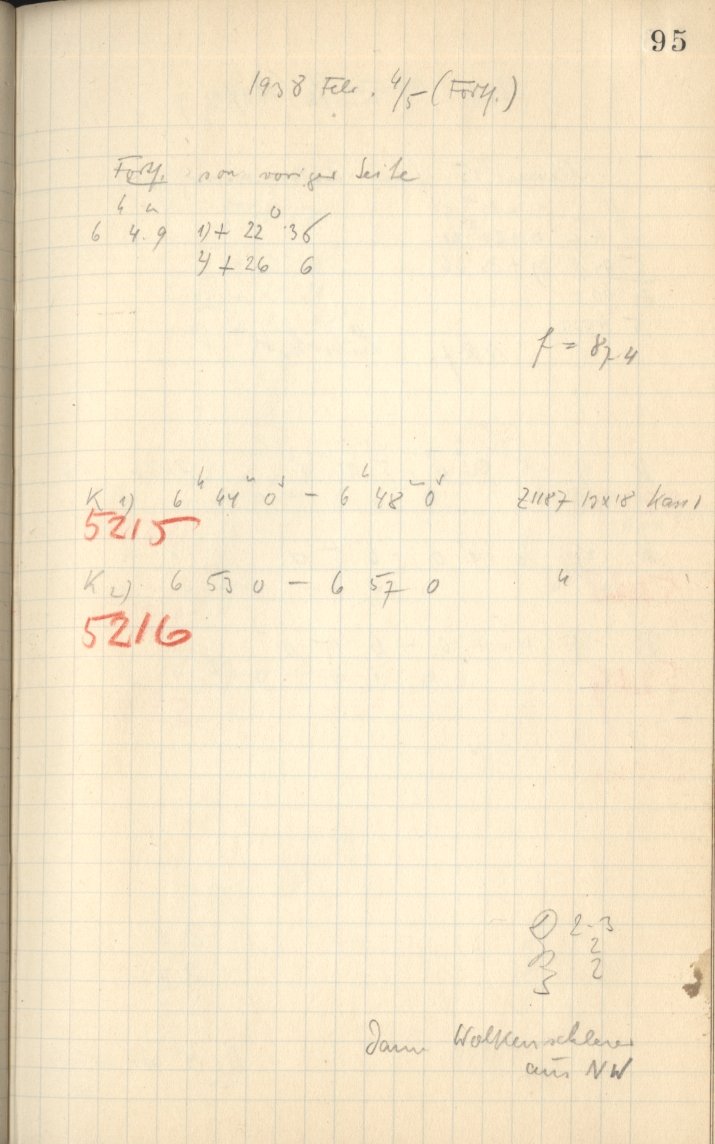 95
1938 Febr. 4/5 (Forts.)
Forts. von voriger Seite
h m °
6 4.9 1) + 22 36
2) + 26 6
f = 87 4
K 1) 6 h 44 m 0 s – 6 h 48 m 0 s Z1187 13x18
5215
K 2) 6 53 0 – 6 57 0 "
5216
D 2-3
2
2
Dann Wolkenschleier
aus NW